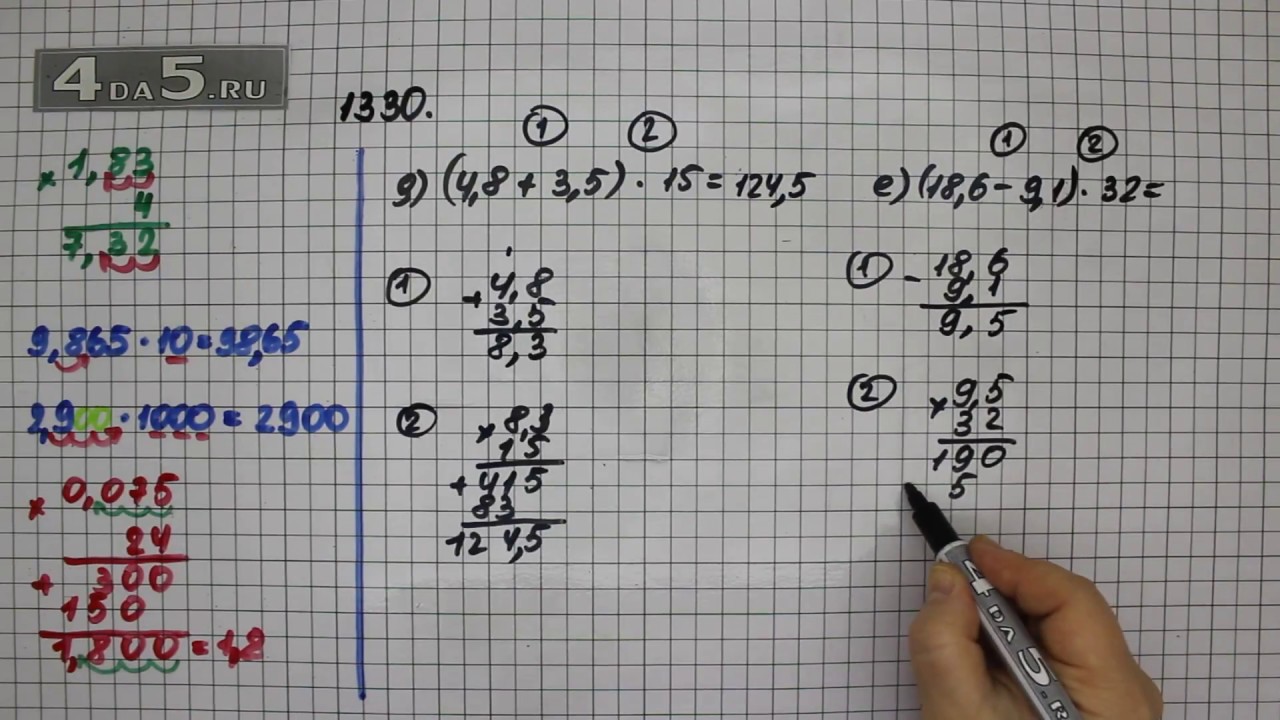 4DA5.RU
1330.
× 1,83
4
7,32
9,865 · 10 = 98,65
2,900 · 1000 = 2900
× 0,075
24
+ 300
150
1,800 = 1,8
1 2
д) (4,8 + 3,5) · 15 = 124,5
1
+ 4,8
3,5
8,3
2
× 8,3
15
+ 415
83
124,5
1 2
е) (18,6 - 9,1) · 32 =
1
- 18,6
9,1
9,5
2
× 9,5
32
190
5
4DA5.R